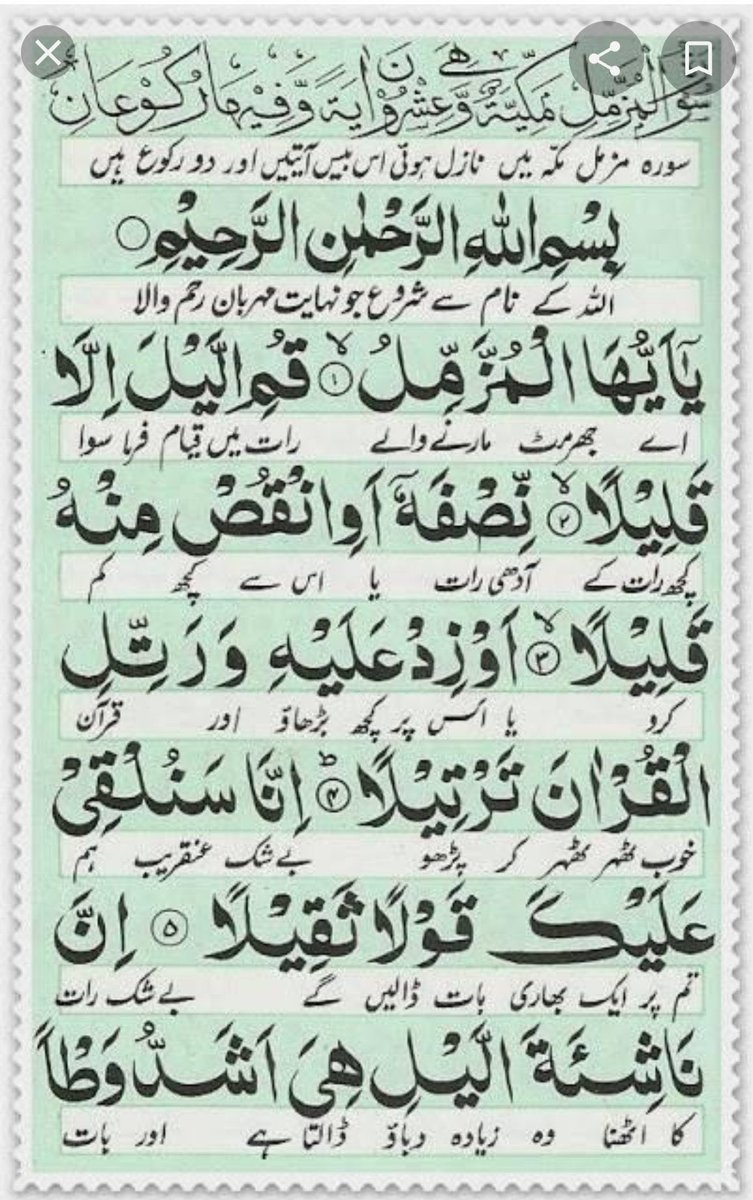 سُوْرَةُ الْمُزَّمِّلِ مَكِّيَّةٌ وَّهِيَ عِشْرُوْنَ اٰيَةً وَّفِيْهَا رُكُوْعَانِ
سورہ مزمل مکہ میں نازل ہوئی اس بیس آیتیں اور دو رکوع ہیں
بِسْمِ اللّٰهِ الرَّحْمٰنِ الرَّحِيْمِ
اللہ کے نام سے شروع جو نہایت مہربان رحم والا
يٰۤاَيُّهَا الْمُزَّمِّلُ ۙ۱ قُمِ الَّيْلَ اِلَّا
اے جھرمٹ مارنے والے رات میں قیام فرما سوا
قَلِيْلًا ۙ۲ نِّصْفَهٗۤ اَوِ انْقُصْ مِنْهُ
کچھ رات کے آدھی رات یا اس سے کچھ کم
قَلِيْلًا ۙ۳ اَوْ زِدْ عَلَيْهِ وَ رَتِّلِ
کرو یا اس پر کچھ بڑھاؤ اور قرآن
الْقُرْاٰنَ تَرْتِيْلًا ؕ۴ اِنَّا سَنُلْقِيْ
خوب ٹھہر ٹھہر کر پڑھو بے شک عنقریب ہم
عَلَيْكَ قَوْلًا ثَقِيْلًا ۵ اِنَّ
تم پر ایک بھاری بات ڈالیں گے بے شک رات
نَاشِئَةَ الَّيْلِ هِيَ اَشَدُّ وَطْاً
کا اٹھنا وہ زیادہ دباؤ ڈالتا ہے اور بات